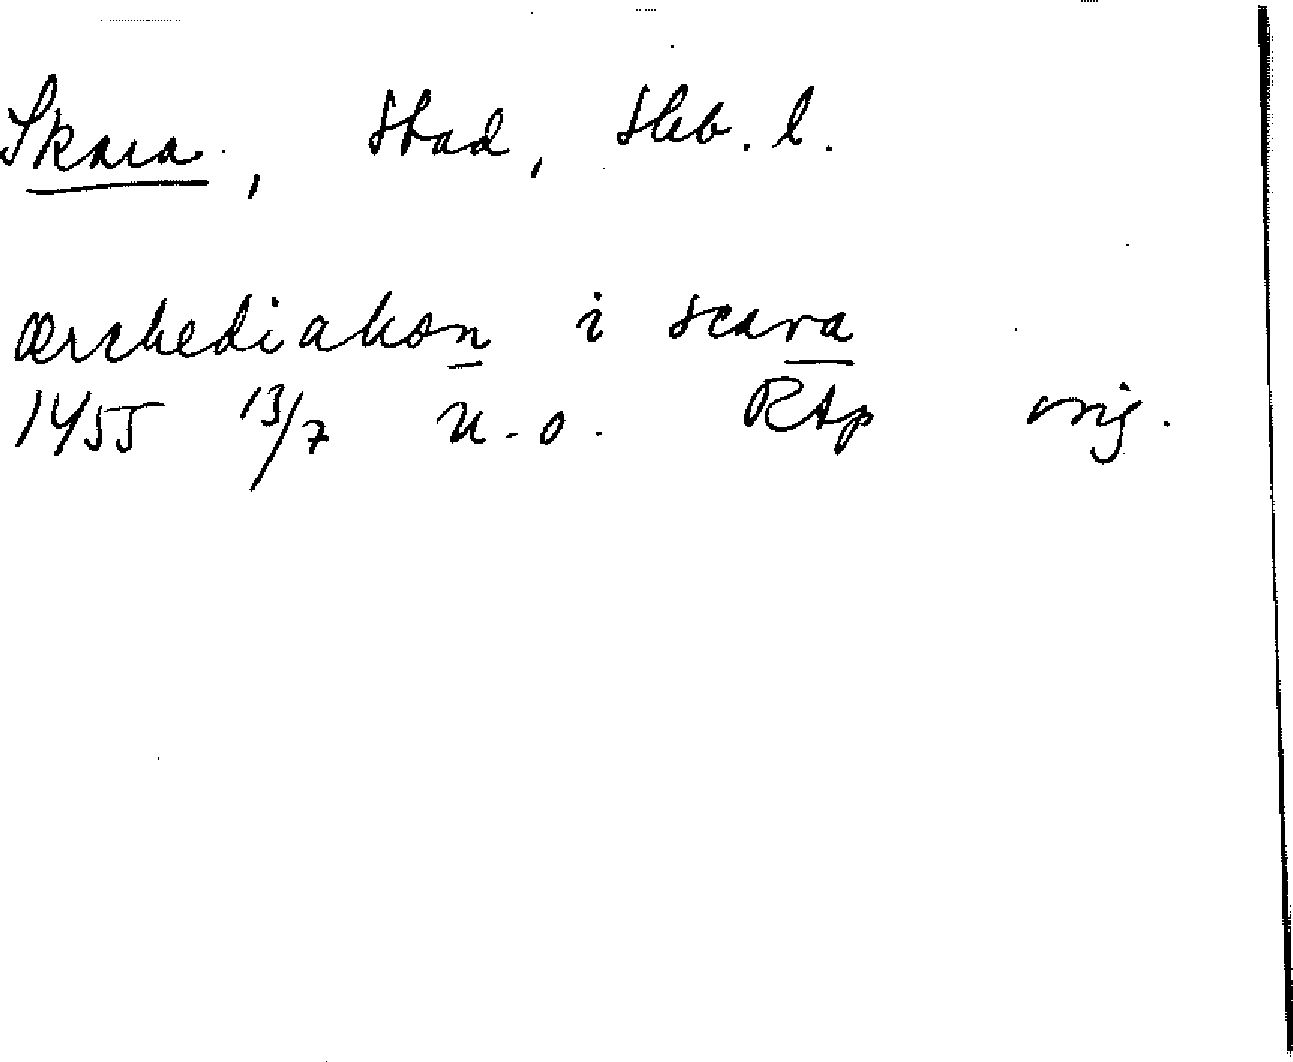 Skara, stad, Skb. l.
ærchediakon i scara
1455 13/7 u.o. RAp orig.